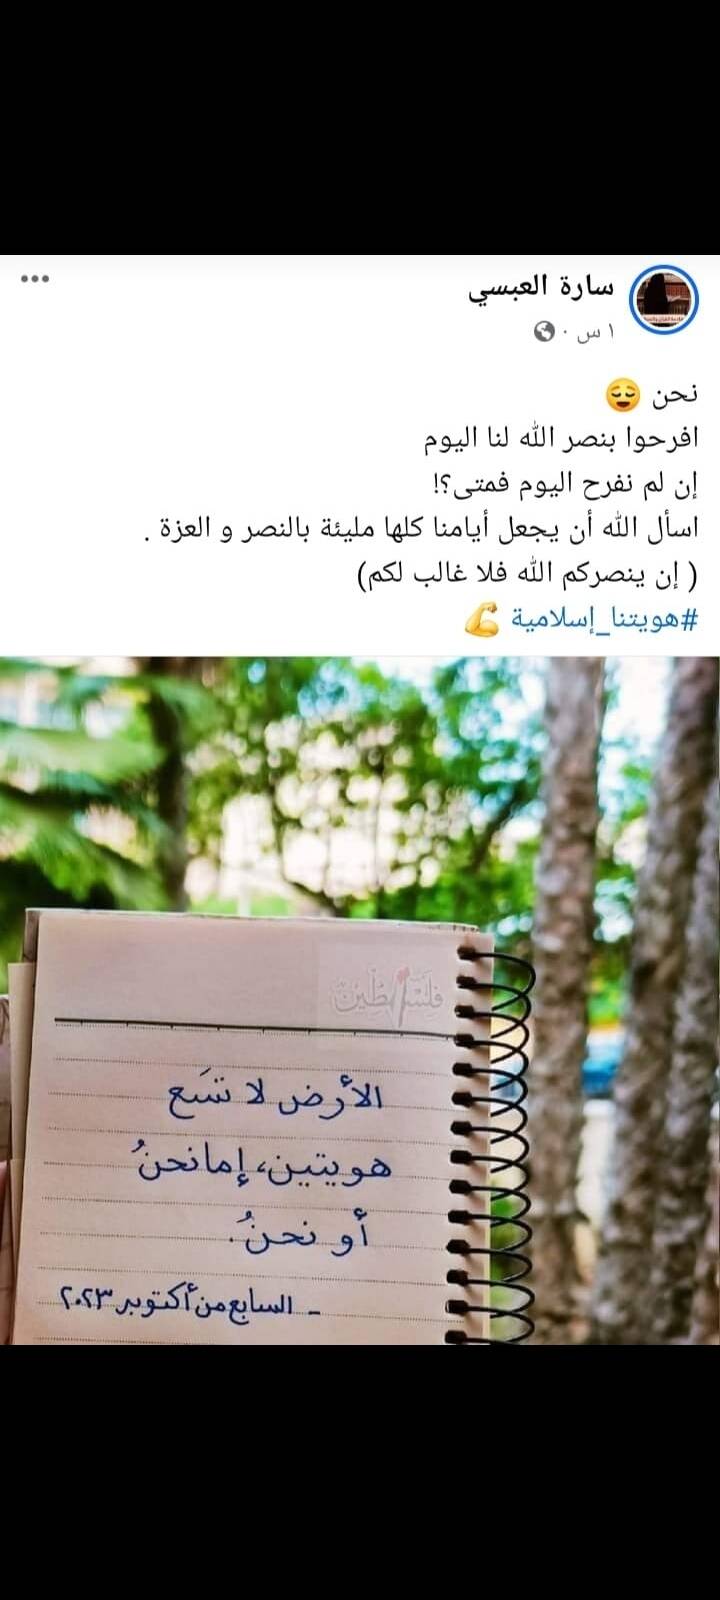 سارة العبسي
١ س ·
نحن 😌
افرحوا بنصر الله لنا اليوم
إن لم نفرح اليوم فمتى؟!
اسأل الله أن يجعل أيامنا كلها مليئة بالنصر و العزة .
( إن ينصركم الله فلا غالب لكم)
#هويتنا_إسلامية 💪
فلسطين
الأرض لا تسَع
هويتين، إما نحنُ
أو نحنُ.
ـ السابع من أكتوبر ٢٠٢٣